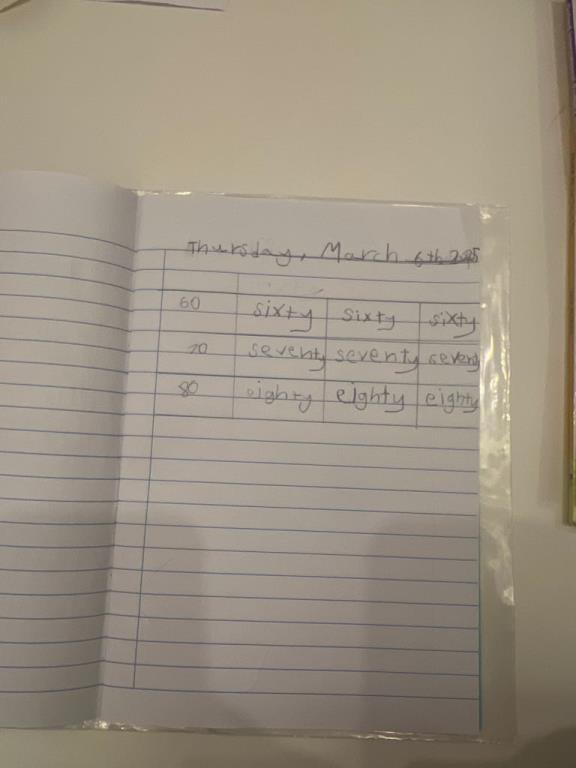 Thursday, March 6th 2025
60 sixty sixty sixty
70 seventy seventy seventy
80 eighty eighty eighty